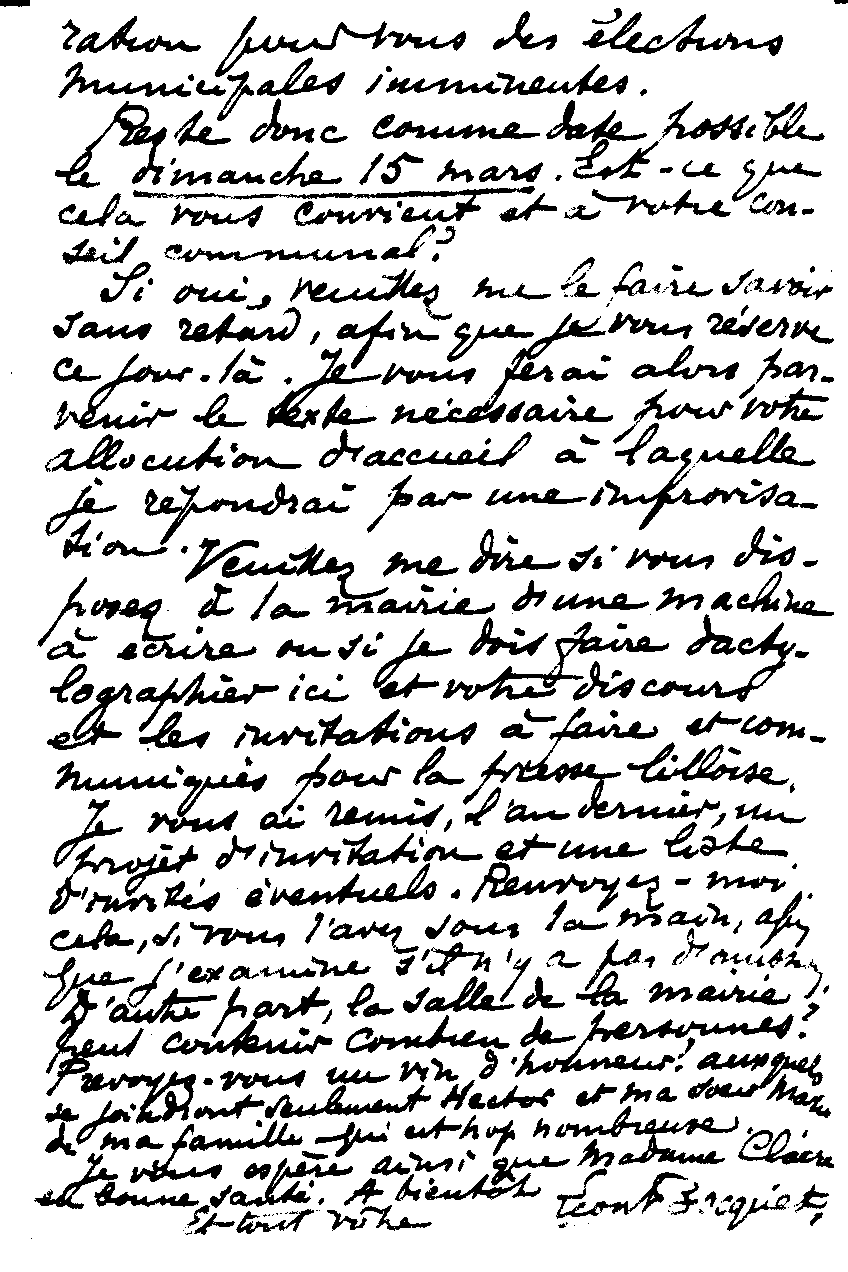 ration pour vous des élections
municipales imminentes.
Reste donc comme date possible
le dimanche 15 mars. Est-ce que
cela vous convient et à votre con-
seil communal?
Si oui, veuillez me le faire savoir
sans retard, afin que je vous réserve
ce jour-là. Je vous ferai alors par-
venir le texte nécessaire pour votre
allocution d'accueil à laquelle
je répondrai par une improvisa-
tion. Veuillez me dire si vous dis-
posez à la mairie d'une machine
à écrire ou si je dois faire dacty-
lographier ici et votre discours
et les invitations à faire et com-
muniqués pour la presse lilloise.
Je vous ai remis, l'an dernier, un
projet d'invitation et une liste
d'invités éventuels. Renvoyez-moi
cela, si vous l'avez sous la main, afin
que j'examine s'il n'y a pas d'omission.
D'autre part, la salle de la mairie
peut contenir combien de personnes?
Prévoyez-vous un vin d'honneur? auxquels
se joindront seulement Hector et ma soeur
de ma famille qui est trop nombreuse.
Je vous espère ainsi que Madame Claire
en bonne santé. A bientôt
Et tout vôtre